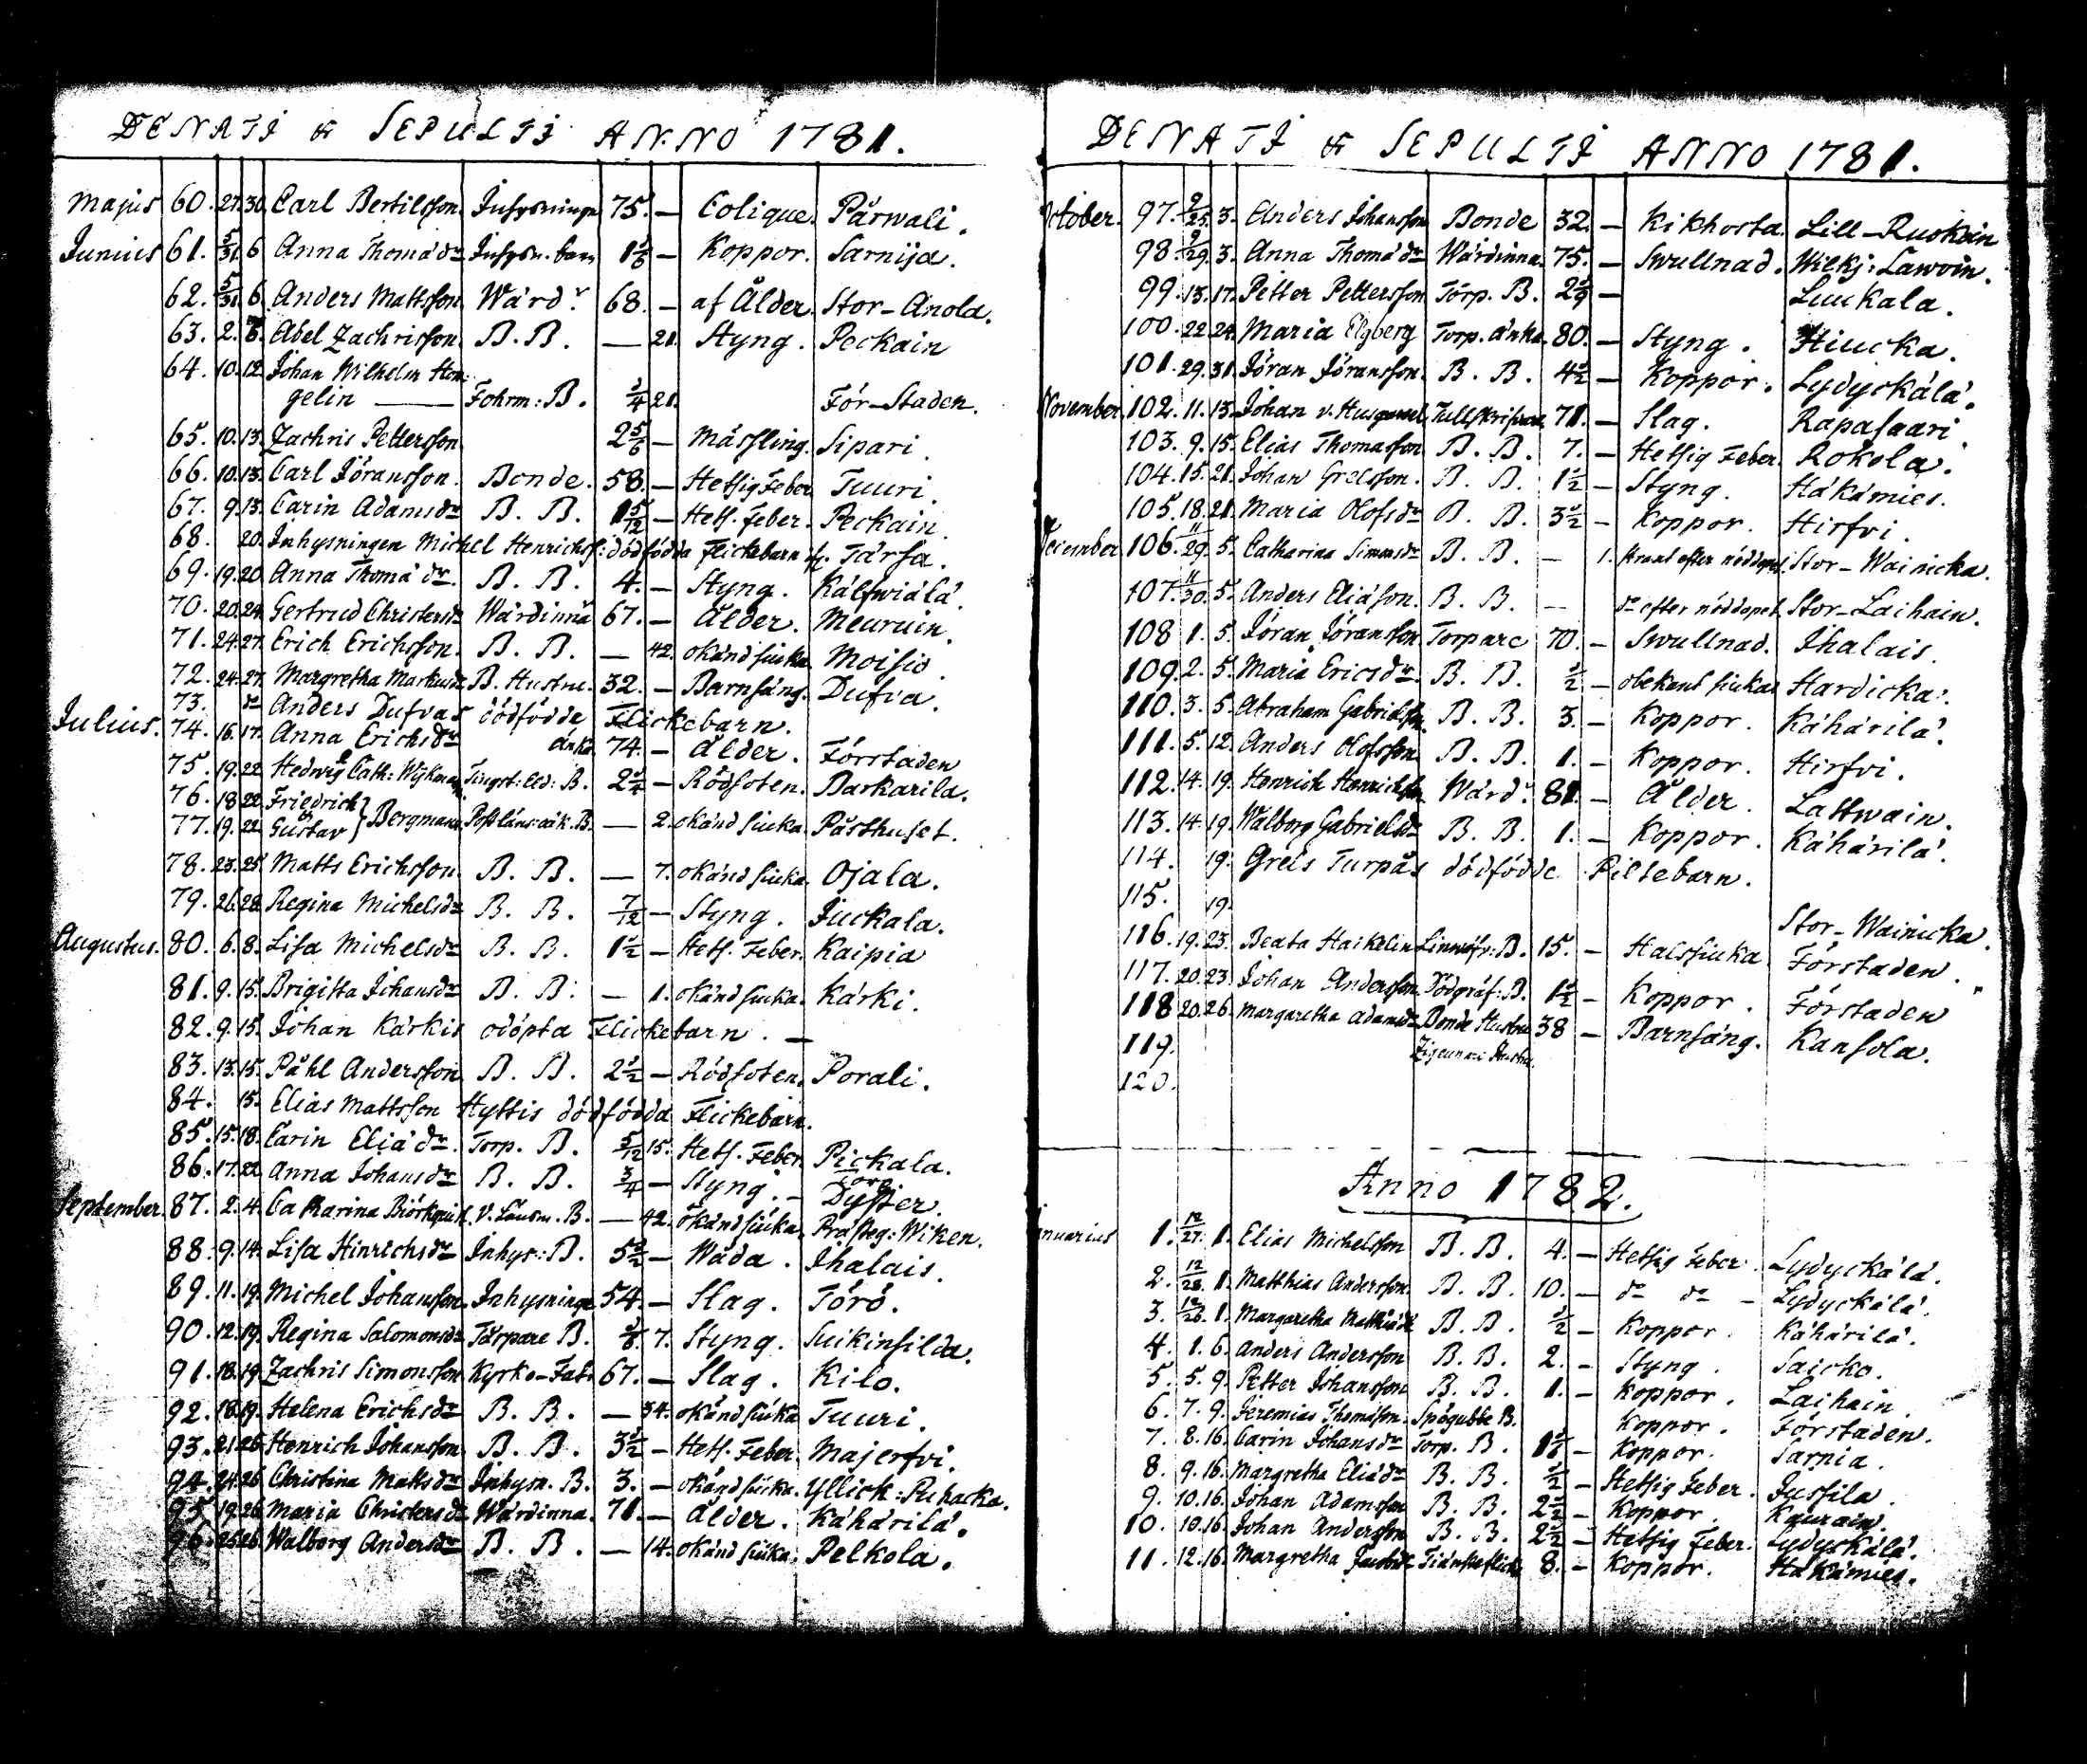 DENATI & SEPULTI ANNO 1781.
Majus 60. 27. 30. Carl Bertilsson Inhysninge 75. — Colique. Pärwali.
Junius 61. 5/31. 6 Anna Thomædr Inhysn. barn 1 1/6 — Koppor. Sarnija.
62. 5/31. 6. Anders Mattsson Wärdr 68. — af Ålder. Stor-Anola.
63. 2. 6. Abel Zachrisson B. B. — 21. Styng. Peckain
64. 10. 12. Johan Wilhelm Hon-
gelin — Fohrm: B. 1/4 21. För-Staden.
65. 10. 13. Zachris Pettersson 2 5/6 — Mässling. Sipari.
66. 10. 13. Carl Jöransson. Bonde. 58. — Hetsig Feber Tuuri.
67. 9. 13. Carin Adamsdr B. B. 1 5/12 — Hets. Feber. Peckain.
68. 20. Inhysningen Michel Henrichss: dödfödda Flickebarn fr. Tärfa.
69. 19. 20. Anna Thomædr. B. B. 4. — Styng. Kälfwiälä.
70. 20. 24. Gertrud Christersdr Wärdinna 67. — Ålder. Meuruin.
71. 24. 27. Erich Erichsson. B. B. — 42. okänd siuka. Moisio.
72. 24. 27. Margretha Markusdr B. Hustru. 32. — Barnsäng. Dufva.
73. dr Anders Dufvas dödfödde Flickebarn.
Julius. 74. 16. 17. Anna Erichsdr änka 74. — Ålder. Förstaden
75. 19. 22. Hedwig Cath: Wijkman Tingst: Led: B. 2 1/4 — Rödsoten. Barkarila.
76. 18. 22. Friedrich
77. 19. 22. & Gustav } Bergmann B. — 2. okänd siuka. Påsthuset.
78. 23. 25. Matts Erichsson. B. B. — 7. okänd siuka. Ojala.
79. 26. 28. Regina Michelsdr B. B. 7/12 — Styng. Juckala.
Augustus. 80. 6. 8. Lisa Michelsdr B. B. 1 1/2 — Hets. Feber. Kaipia
81. 9. 15. Brigitta Johansdr B. B. — 1. okänd siuka. Kärki.
82. 9. 15. Johan Kärkis odöpta Flickebarn. —
83. 13. 15. Påhl Andersson B. B. 2 1/2 — Rödsoten. Porali.
84. 15. Elias Mattsson Hyttis dödfödda Flickebarn.
85. 15. 18. Carin Eliædr. Torp. B. 5/12 15. Hets. Feber. Pickala.
86. 17. 22. Anna Johansdr B. B. 3/4 — Styng. — Dyster.
September. 87. 2. 4. Catharina Biörkqvist V. Länsm. B. — 42. okänd siuka. Wiken.
88. 9. 14. Lisa Hinrichsdr Inhys: B. 5 1/2 — Wåda. Ihalais.
89. 11. 19. Michel Johansson. Inhysninge 54. — Slag. Törö.
90. 12. 19. Regina Salomonsdr Torpare B. 1/6. 7. Styng. Suikinsilda.
91. 18. 19. Zachris Simonsson Kyrko-Fat: 67. — Slag. Kilo.
92. 18. 19. Helena Erichsdr B. B. — 34. okänd siuka Tuuri.
93. 21. 26. Henrich Johansson. B. B. 3 1/2 — Hets. Feber. Majerfvi.
94. 24. 26. Christina Mattsdr Inhysn. B. 3. — okänd siuka. Yllick: Puhacka.
95. 19. 26. Maria Christersdr Wärdinna. 71. — Ålder. Kähärilä.
96. 25. 26. Walborg Andersdr B. B. — 14. okänd siuka. Pelkola.
DENATI & SEPULTI ANNO 1781.
October. 97. 9/25. 3. Anders Johansson Bonde 32. — Kikhosta. Lill-Ruokoin
98. 9/29. 3. Anna Thomædr Wärdinna. 75. — Swullnad. Wilkj: Lawoin.
99. 13. 17. Petter Pettersson Torp. B. 2 1/9 — Luukala.
100. 22. 24. Maria Elgberg Torp. änka. 80. — Styng. Hiucka.
101. 29. 31. Jöran Jöransson. B. B. 4 1/2 — Koppor. Lydyckälä.
November. 102. 11. 13. Johan v. Husgavel Tullskrifvare 71. — Slag. Rapasaari.
103. 9. 15. Elias Thomasson B. B. 7. — Hetsig Feber. Rokola.
104. 15. 21. Johan Grelsson. B. B. 1 1/2 — Styng. Häkämies.
105. 18. 21. Maria Olofsdr B. B. 3 1/2 — Koppor. Hirfvi.
December. 106. 11/29. 5. Catharina Simonsdr B. B. — 1. straxt efter nöddopet. Stor-Wainicka.
107. 11/30. 5. Anders Eliæson. B. B. — dr efter nöddopet. Stor-Laihain.
108 1. 5. Jöran Jöransson Torpare 70. — Swullnad. Ihalais.
109. 2. 5. Maria Ericsdr. B. B. 1/2 — obekant siukas Hardicka.
110. 3. 5. Abraham Gabrielsson B. B. 3. — Koppor. Kähärilä.
111. 5. 12. Anders Olofsson B. B. 1. — Koppor. Hirfvi.
112. 14. 19. Henrich Henrichsson Wärdr 81. — Ålder. Lattwain.
113. 14. 19. Walborg Gabrielsdr B. B. 1. — Koppor. Kähärilä.
114. 19. Grels Turpas dödfödde Piltebarn.
115. 19. Stor-Wainicka.
116. 19. 23. Beata Haikelin B. 15. — Halssiuka Förstaden.
117. 20. 23. Johan Andersson. Dödgräf: B. 1 1/2 — Koppor. Förstaden
118 20. 26. Margaretha Adamsdr Bonde Hustru 38 — Barnsäng. Kansola.
119. Zigeunari Hustru.
120.
Anno 1782.
Januarius 1. 12/27. 1. Elias Michelsson B. B. 4. — Hetsig Feber. Lydyckälä.
2. 12/28. 1. Matthias Andersson. B. B. 10. — dr dr — Lydyckälä.
3. 12/28. 1. Margaretha Mathiædr B. B. 1/2 — Koppor. Kähärilä.
4. 1. 6. Anders Andersson B. B. 2. — Styng. Saicko.
5. 5. 9. Petter Johansson B. B. 1. — Koppor. Laihain.
6. 7. 9. Jeremias Thomæson. Spögubbe B. Koppor. Förstaden.
7. 8. 16. Carin Johansdr Torp. B. 1 1/2 — Koppor. Sarnia.
8. 9. 16. Margretha Eliædr B. B. 1/2 — Hetsig Feber. Jussila.
9. 10. 16. Johan Adamsson B. B. 2 1/2 — Koppor. Kaurain.
10. 10. 16. Johan Andersson B. B. 2 1/2 — Hetsig Feber. Lydyckälä.
11. 12. 16. Margretha Jacobsdr 8. — Koppor. Häkämies.